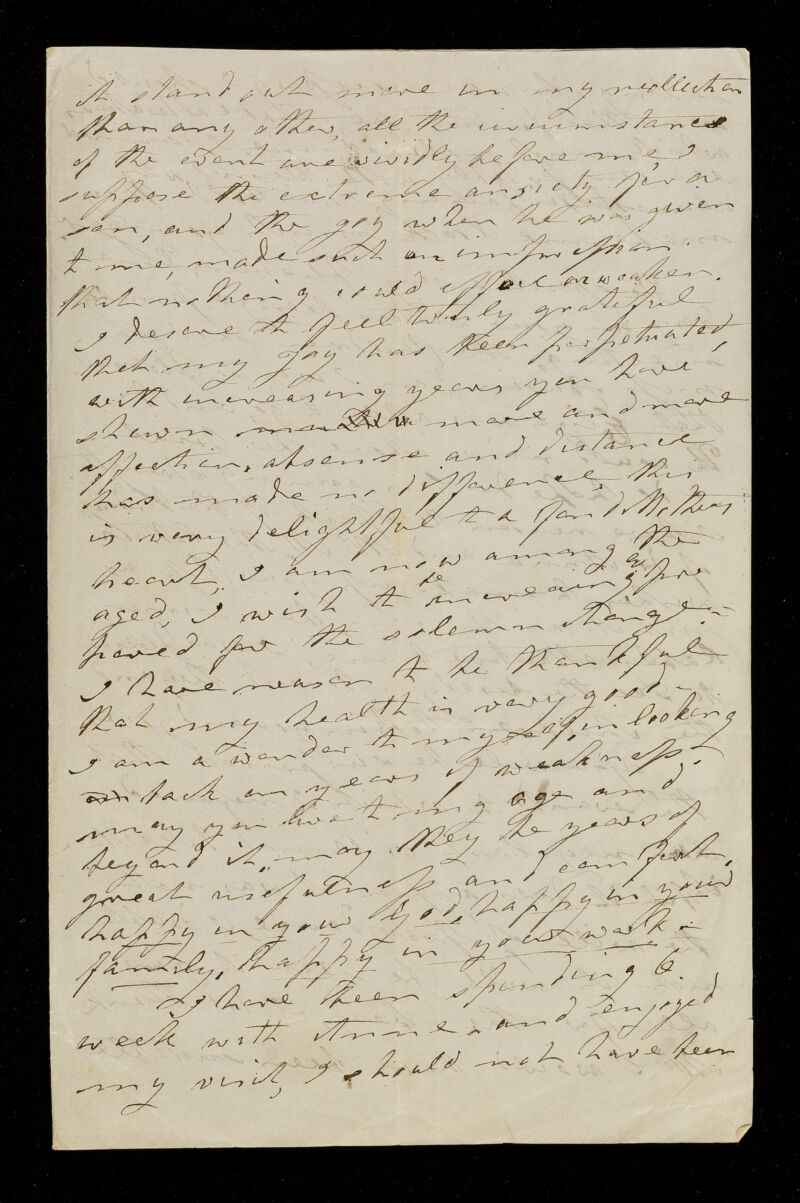 it stand out more in my recollection
than any other, all the circumstances
of the event are vividly before me I
suppose the extreme anxiety for a
son, and the joy when he was given
to me, made such an impression.
that nothing could efface or weaken.
I desire to feel truly grateful
that my joy has been perpetuated,
with increasing years you have
shewn more and more
affection, absense and distance
has made no difference, this
is very delightful to a fond Mothers
heart, I am now among the
aged, I wish to be increasingly pre
pared for the solemn change -
I have reason to be thankful
that my health is very good -
I am a wonder to myself, in looking
back on years of weakness -
may you live to my age and
beyond it, may they be years of
great usefulness and comfort,
happy in your God, happy in your
family, happy in your work -
I have been spending a
week with Anne, and enjoyed
my visit, I should not have been